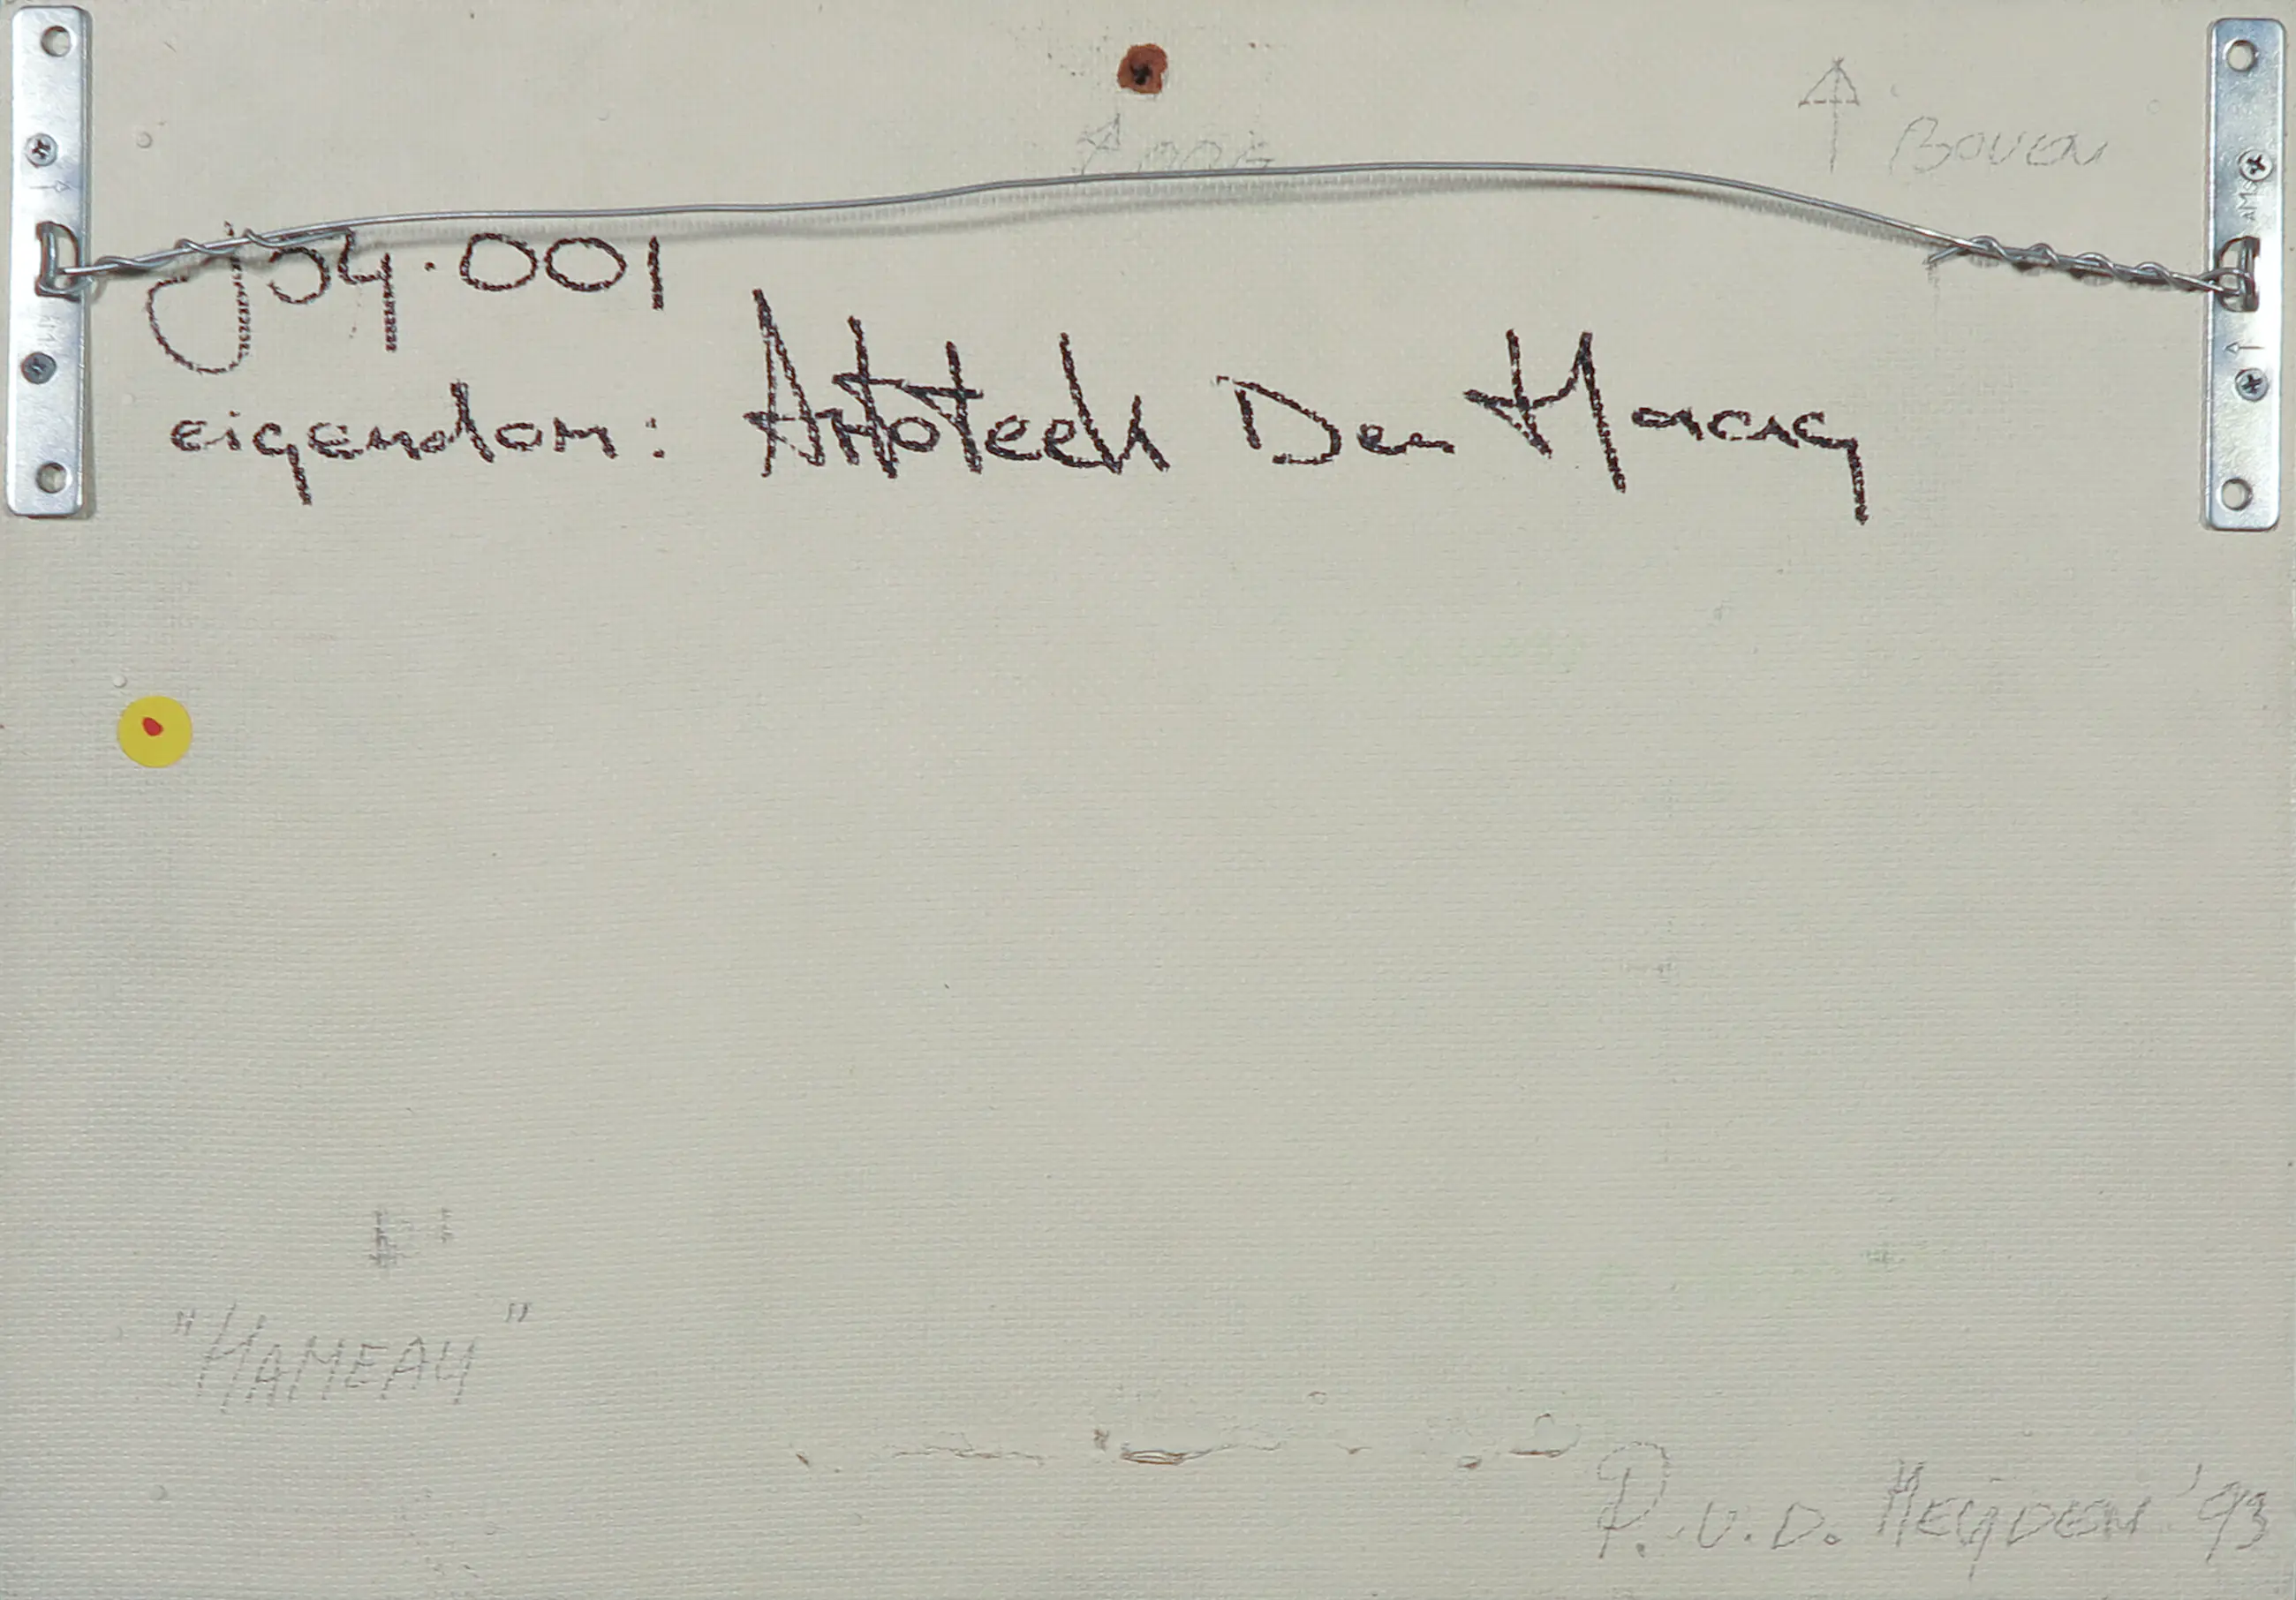 ↑ Boven
j54.001
eigendom: Artoteek Den Haag
"HAMEAU"
P. v. D. Heijden '93